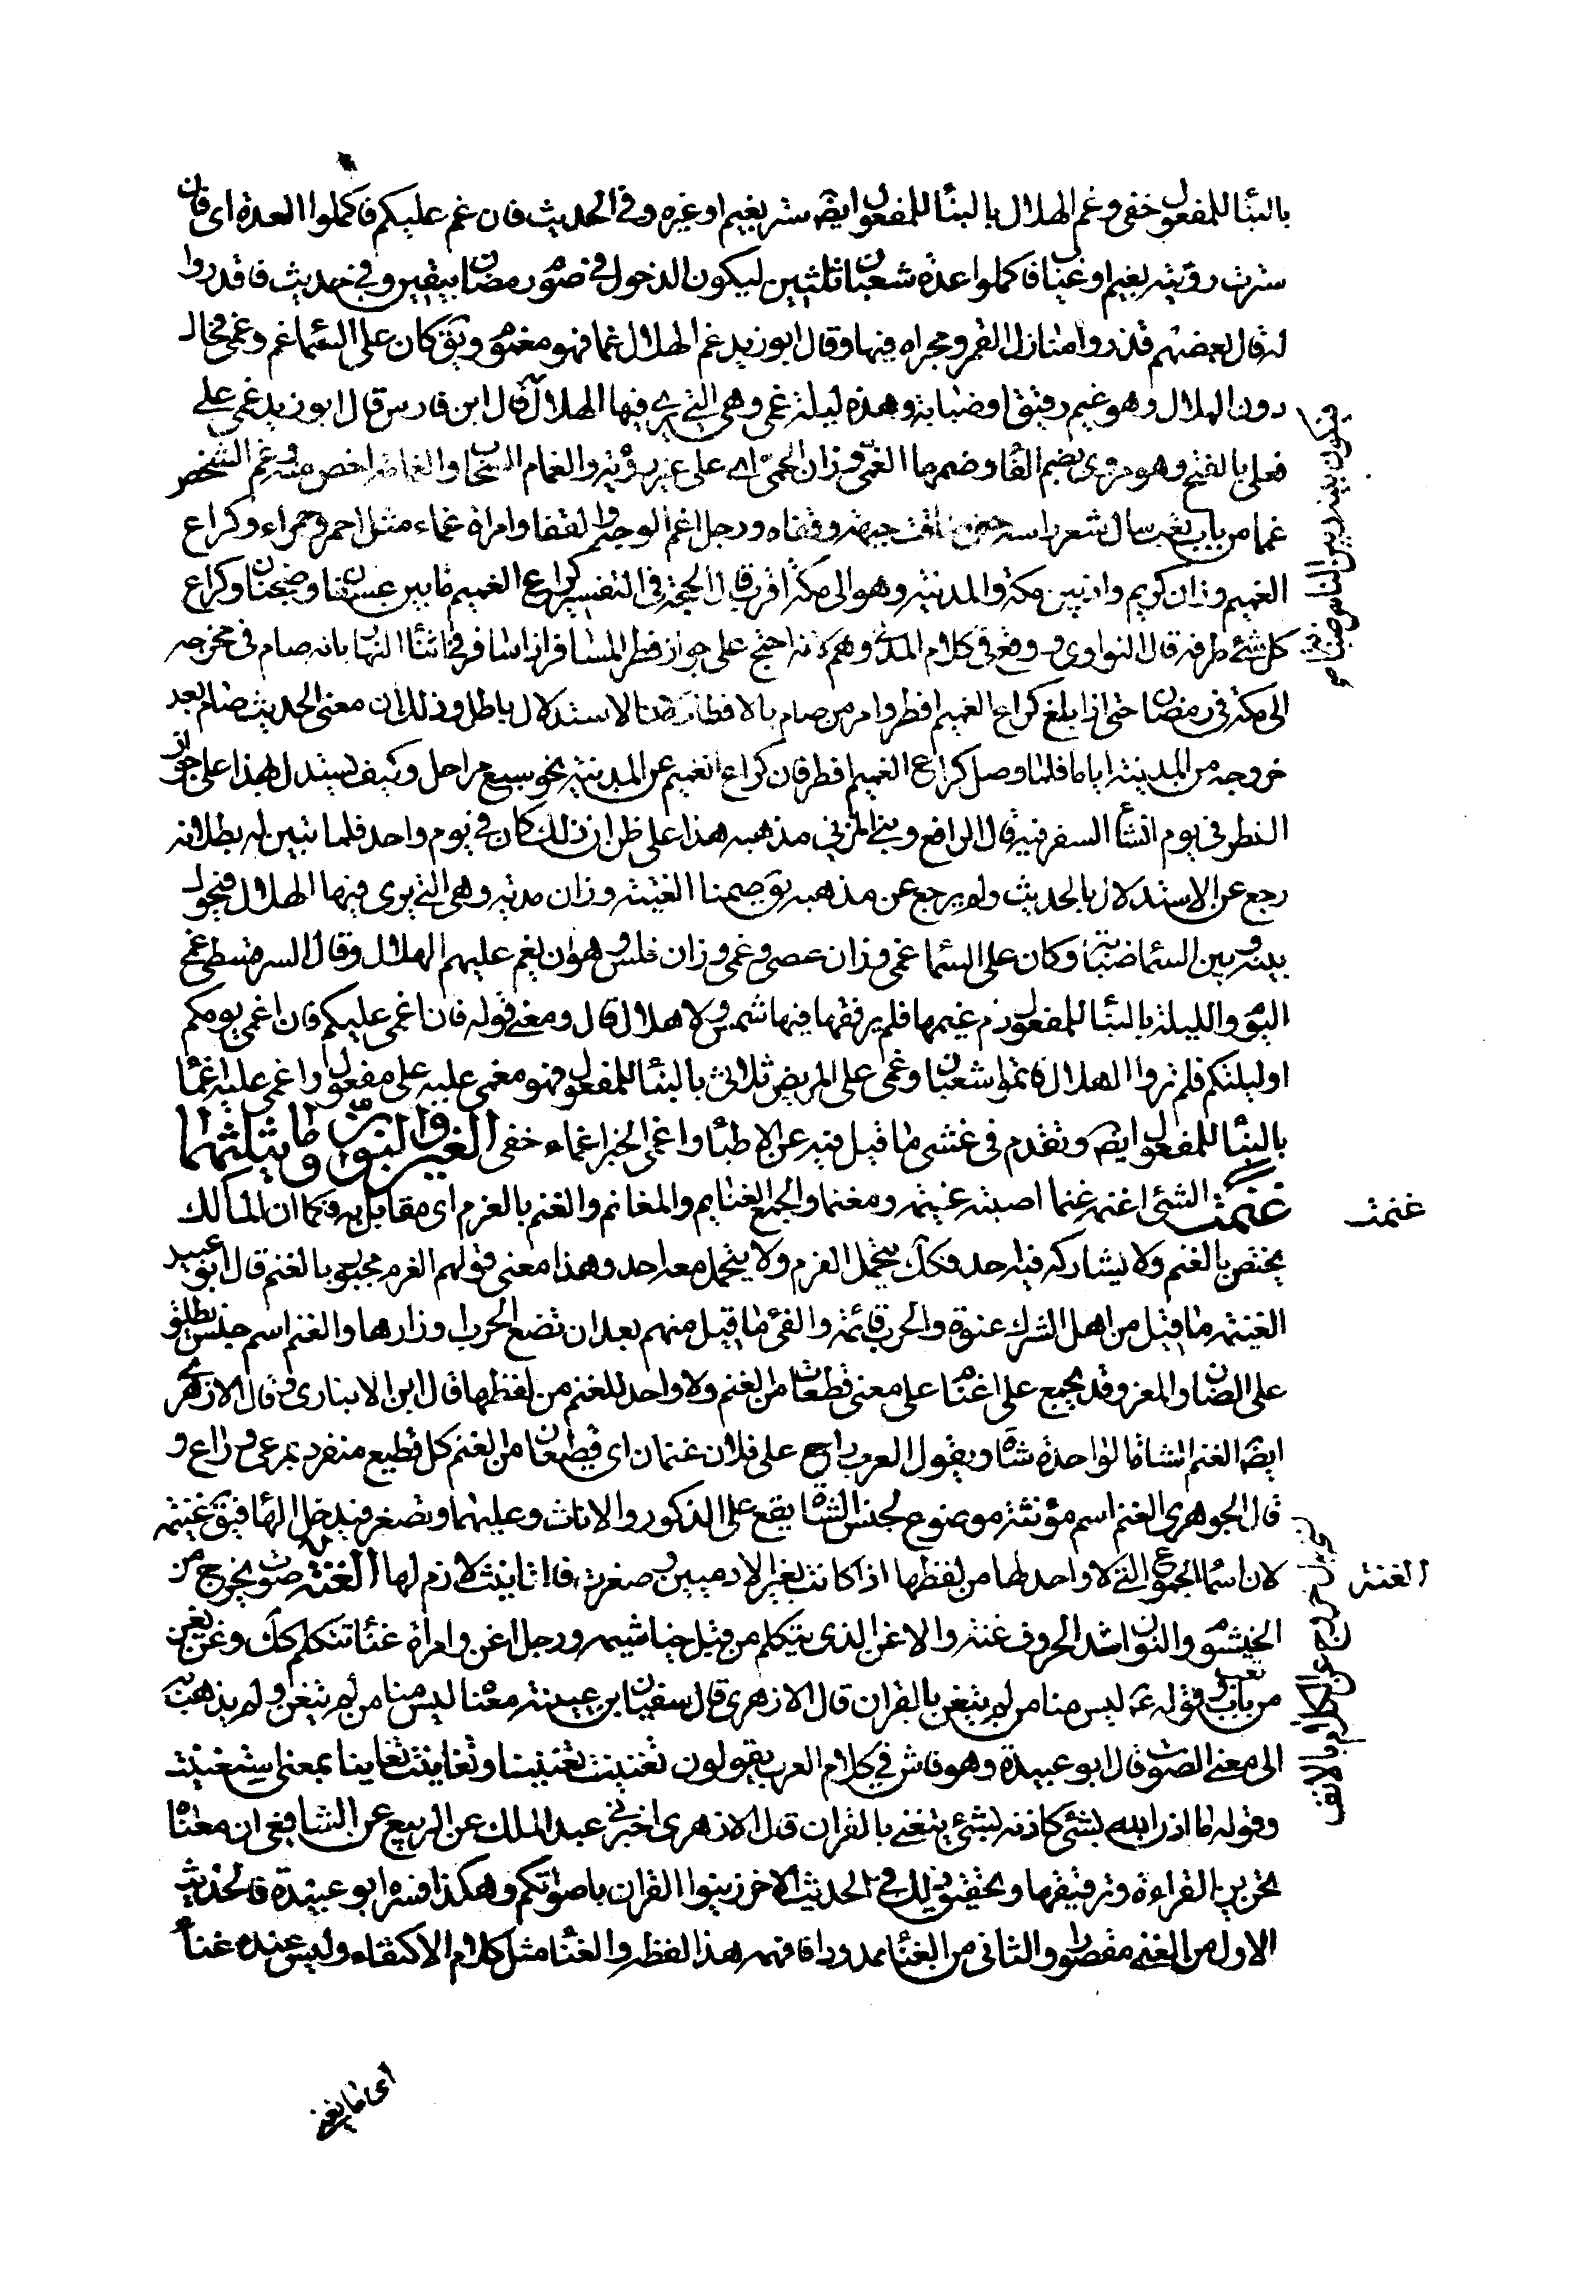 بالبناء للمفعول خفى وغم الهلال بالبناء للمفعول ايضا ستر بغيم او غيره وفى الحديث فان غم عليكم فاكملوا العدة اى فان
سترت رؤيته بغيم او ضباب فاكملوا عدة شعبان ثلثين ليكون الدخول فى صوم رمضان بيقين وفى حديث فاقدروا
له قال بعضهم قدروا منازل القمر ومجراه فيها وقال ابو زيد غم الهلال غما فهو مغموم ويقال كان على السماء غم وغمى فحال
دون الهلال وهو غيم رقيق او ضبابة وهذه ليلة غمى وهى التى يرى فيها الهلال قال ابن فارس قال ابو زيد غمى على
فعلى بالفتح وهو مروى بضم الفاء وصمنا الغمى وزان الحمى اى على غير رؤية والغمام السحاب والغمامة اخص منه وغم الشخص
غما من باب تعب سال شعر راسه حتى ضاقت جبهته وقفاه ورجل اغم الوجه والقفا وامراة غماء مثل احمر وحمراء وكراع
الغميم وزان كريم واد بين مكة والمدينة وهو الى مكة اقرب قال الحجة فى التفسير كراع الغميم ما بين عسفان وضجنان وكراع
كل شئ طرفه قال النواوى ووقع فى كلام المزنى وهم كانه احتج على جواز فطر المسافر اذا سافر فى اثناء النهار بانه صام فى مخرجه
الى مكة فى رمضان حتى اذا بلغ كراع الغميم افطر وامر من صام بالافطار وهذا الاستدلال باطل وذلك ان معنى الحديث صام بعد
خروجه من المدينة اياما فلما وصل كراع الغميم افطر فان كراع الغميم عن المدينة نحو سبع مراحل وكيف يستدل بهذا على جواز
الفطر فى يوم انشاء السفر فيه قال الرافعى وبنى المزنى مذهبه هذا على ظن ان ذلك كان فى يوم واحد فلما تبين له بطلانه
رجع عن الاستدلال بالحديث ولم يرجع عن مذهبه وصمنا الغمية وزان مدية وهى التى يرى فيها الهلال فيحول
بينه وبين السماء ضبابة وكان على السماء غمى وزان عصى وغمى وزان فلس وهو ان يغم عليهم الهلال وقال السرقسطى غمى
اليوم والليلة بالبناء للمفعول دام غيمها فلم ير فيها شمس ولا هلال قال ومعنى قوله فان اغمى عليكم فان اغمى يومكم
او ليلتكم فلم تروا الهلال فاتموا شعبان وغمى على المريض ثلاثى بالبناء للمفعول فهو مغمى عليه على مفعول واغمى عليه اغماء
بالبناء للمفعول ايضا وتقدم فى غشى ما قيل فيه عن الاطباء واغمى الخبر اغماء خفى الغين والنون وما يثلثهما
غنمت الشئ اغنمه غنما اصبته غنيمة ومغنما والجمع الغنايم والمغانم والغنم بالغرم اى مقابل به فكما ان المالك
يختص بالغنم ولا يشاركه فيه احد فكذلك يتحمل الغرم ولا يتحمل معه احد وهذا معنى قولهم الغرم مجبور بالغنم قال ابو عبيد
الغنيمة ما نيل من اهل الشرك عنوة والحرب قائمة والفئ ما نيل منهم بعد ان تضع الحرب اوزارها والغنم اسم جنس يطلق
على الضان والمعز وقد يجمع على اغنام على معنى قطعات من الغنم ولا واحد للغنم من لفظها قال ابن الانبارى وقال الازهرى
ايضا الغنم الشاء الواحدة شاة ويقول العرب راح على فلان غنمان اى قطيعان من الغنم كل قطيع منفرد بمرعى وراع و
قال الجوهرى الغنم اسم مؤنثة موضوع لجنس الشاء يقع على الذكور والاناث وعليهما وتصغر فيدخل الهاء فيقال غنيمة
لان اسماء الجموع التى لا واحد لها من لفظها اذا كانت لغير الادميين وصغرت فالتانيث لازم لها الغنة صوت يخرج من
الخيشوم والنون اشد الحروف غنة والاغن الذى يتكلم من قبل خياشيمه ورجل اغن وامراة غناء تتكلم كذلك وغن يغن
من باب تعب وقوله ع ليس منا من لم يتغن بالقران قال الازهرى قال سفيان بن عيينة معناه ليس منا من لم يتغن ولم يذهب به
الى معنى الصوت قال ابو عبيدة وهو فاش فى كلام العرب يقولون تغنيت تغنينا وتغانيت تغانينا بمعنى استغنيت
وقوله ما اذن الله لشئ كاذنه لشئ يتغنى بالقران قال الازهرى اخبرنى عبد الملك عن الربيع عن الشافعى ان معناه
تحزين القراءة وترقيقها وتحقيق ذلك فى الحديث الاخر زينوا القران باصواتكم وهكذا فسره ابو عبيدة فالحديث
الاول من الغنى مقصور والثانى من الغناء ممدود فافهمه هذا لفظه والغناء مثل كلام الاكتفاء وليس عنده غناء
غنمت
الغنة
اى ما يغتنى